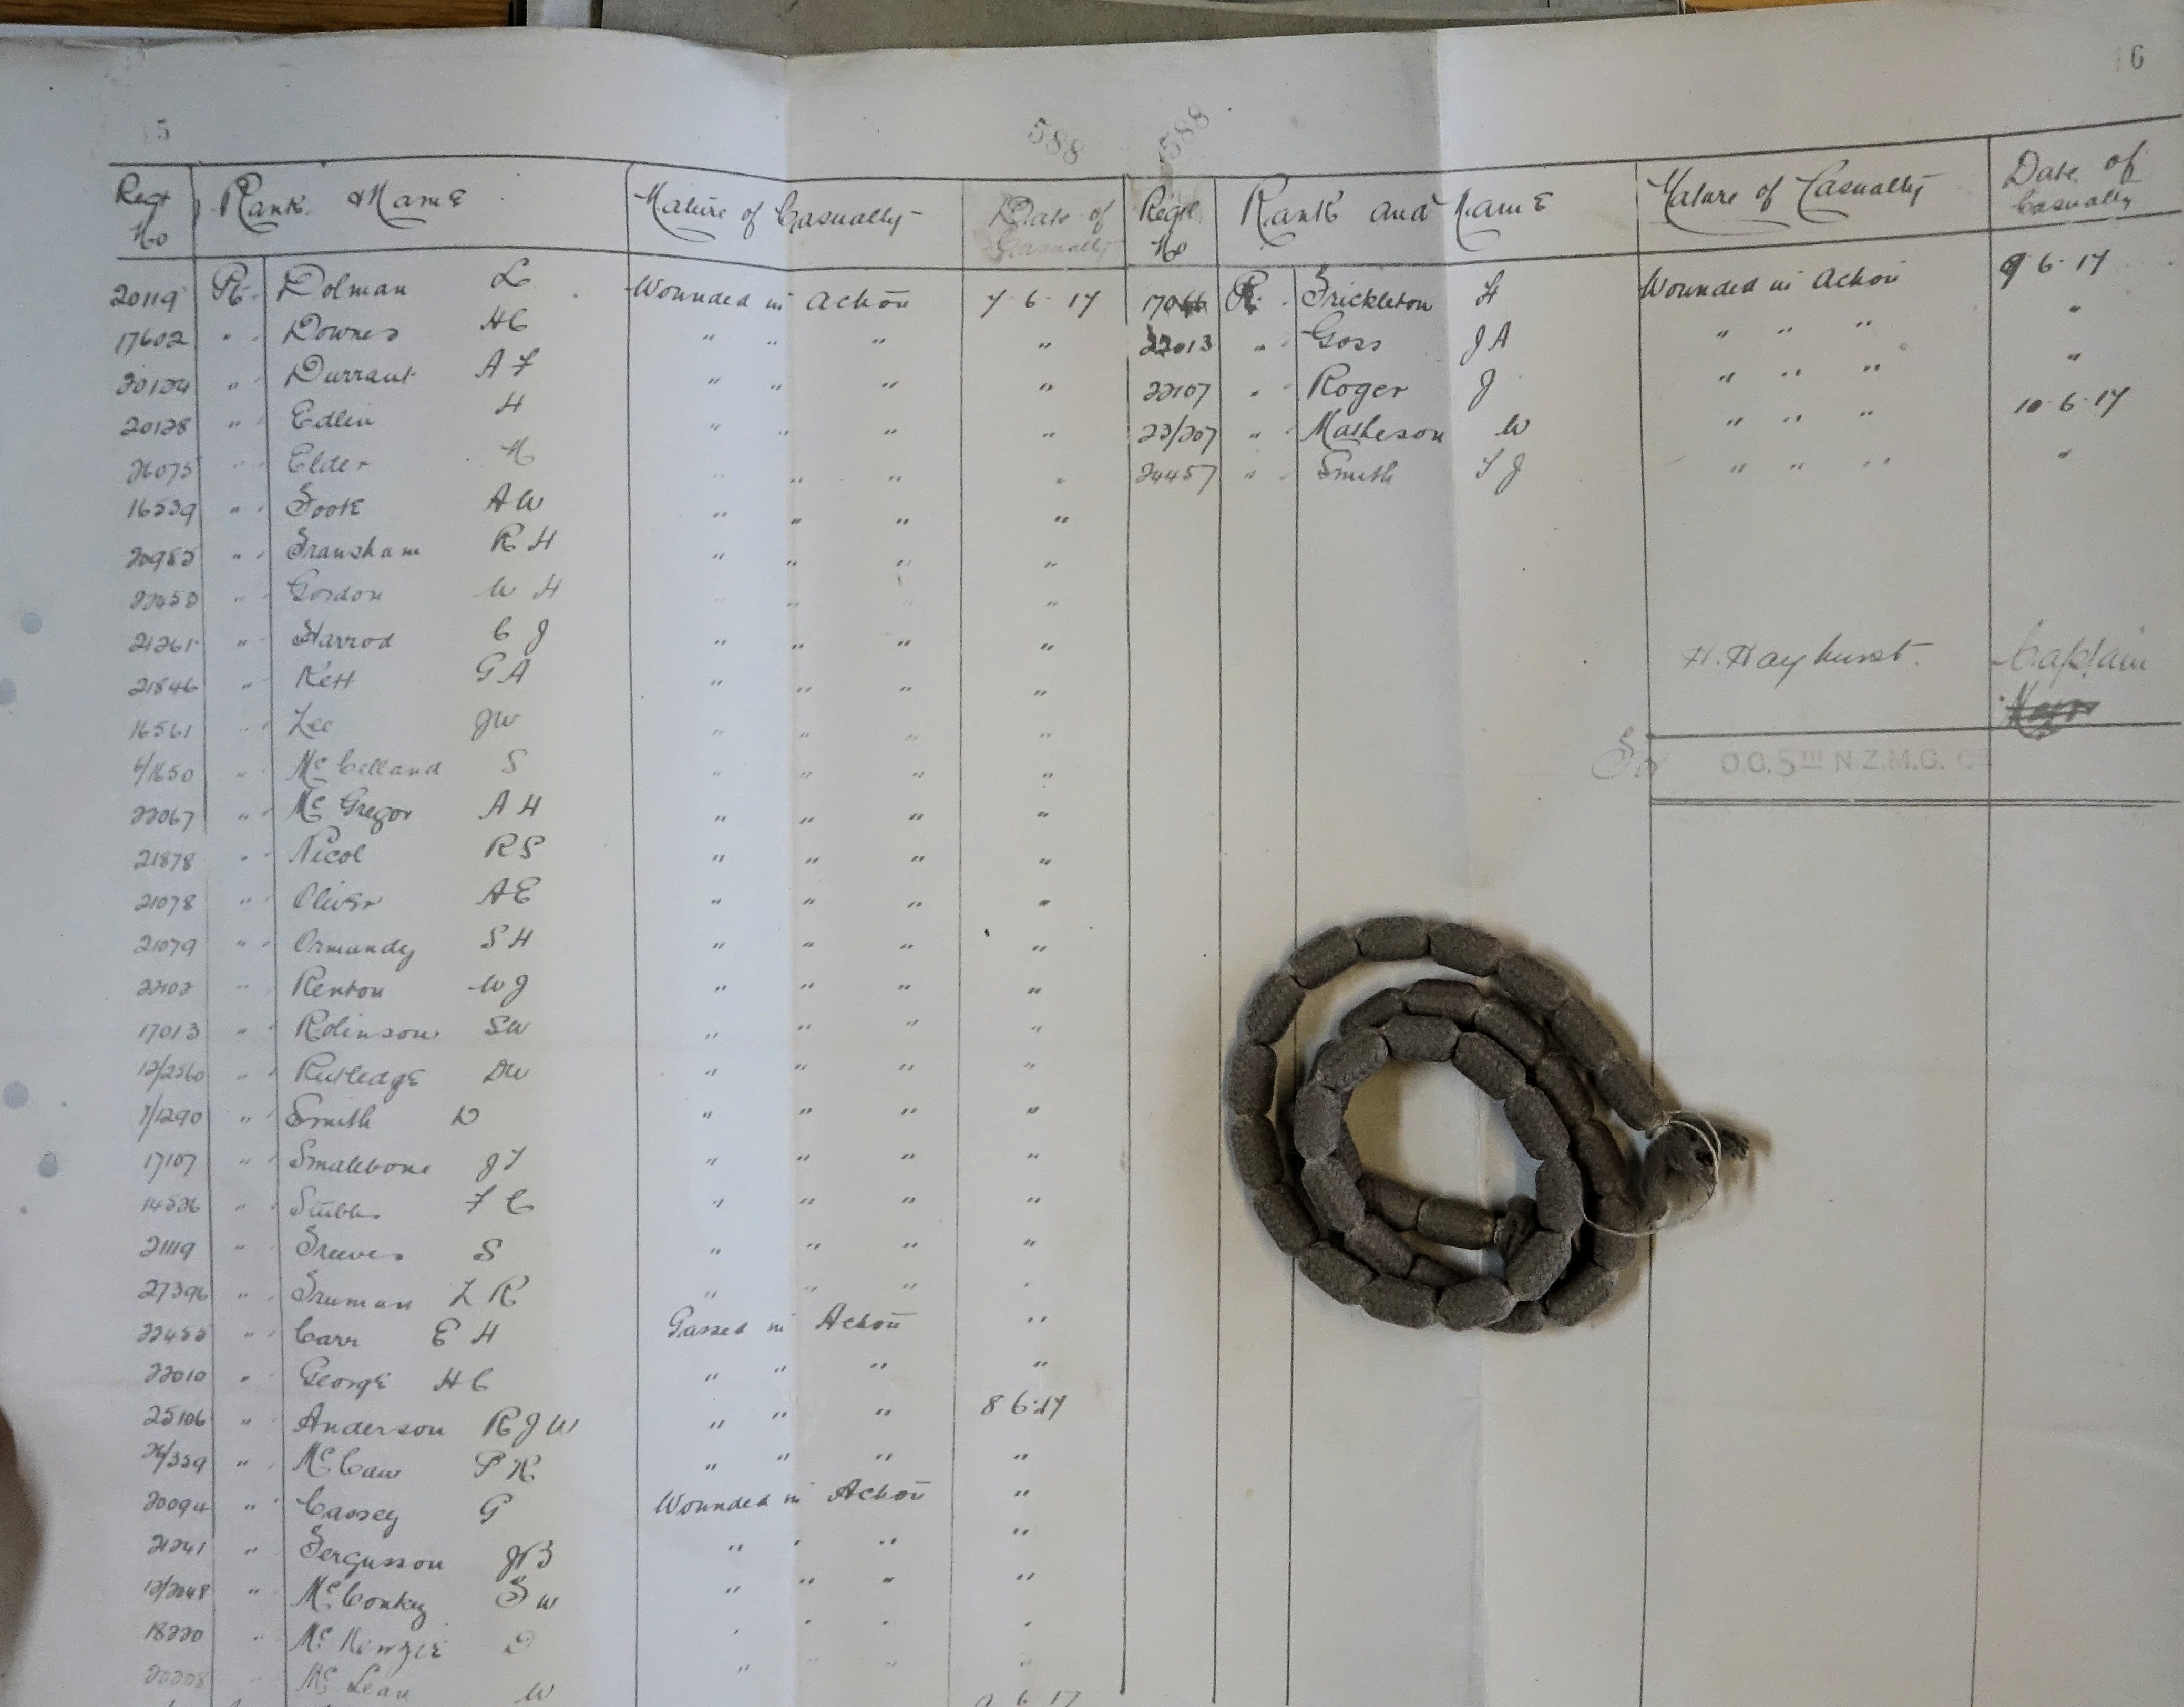 5
6
588
588
Regt No Rank & Name Nature of Casualty Date of Casualty
20119 Pte Dolman L Wounded in Action 7.6.17
17602 " Downes HC " " " "
30124 " Durrant A F " " " "
20128 " Edlin H " " " "
26075 " Elder " " " "
16539 " Foote AW " " " "
" Fransham R H " " " "
" Gordon W H " " " "
21261 " Harrod C J " " " "
21846 " Kett G A " " " "
16561 " Lee JW " " " "
6/1650 " McClelland S " " " "
22067 " McGregor A H " " " "
21878 " Nicol RS " " " "
21078 " Oliver AE " " " "
21079 " Ormandy S H " " " "
" Renton W J " " " "
17013 " Robinson SW " " " "
12/2560 " Rutledge DW " " " "
7/1290 " Smith D " " " "
17107 " Smalebone J T " " " "
14526 " Stubbs F C " " " "
21119 " Treeves S " " " "
27396 " Truman L R " " " "
" Carr E H Gassed in Action "
22010 " George H C " " " "
25106 " Anderson R J W " " " 8 6.17
" McCaw " " " "
20094 " Cassey G Wounded in Action "
21241 " Fergusson JB " " " "
12/2048 " McConkey W " " " "
18220 " McKenzie D " " " "
" McLean W " " " "
9 6 17
Regtl No Rank and Name Nature of Casualty Date of Casualty
Pte Trickleton H Wounded in Action 9 6 17
22013 " Goss J A " " " "
22107 " Roger J " " " "
23/207 " Matheson W " " " 10.6.17
24457 " Smith T J " " " "
H. Hayhurst. Captain
For O.C. 5TH N.Z.M.G. Co